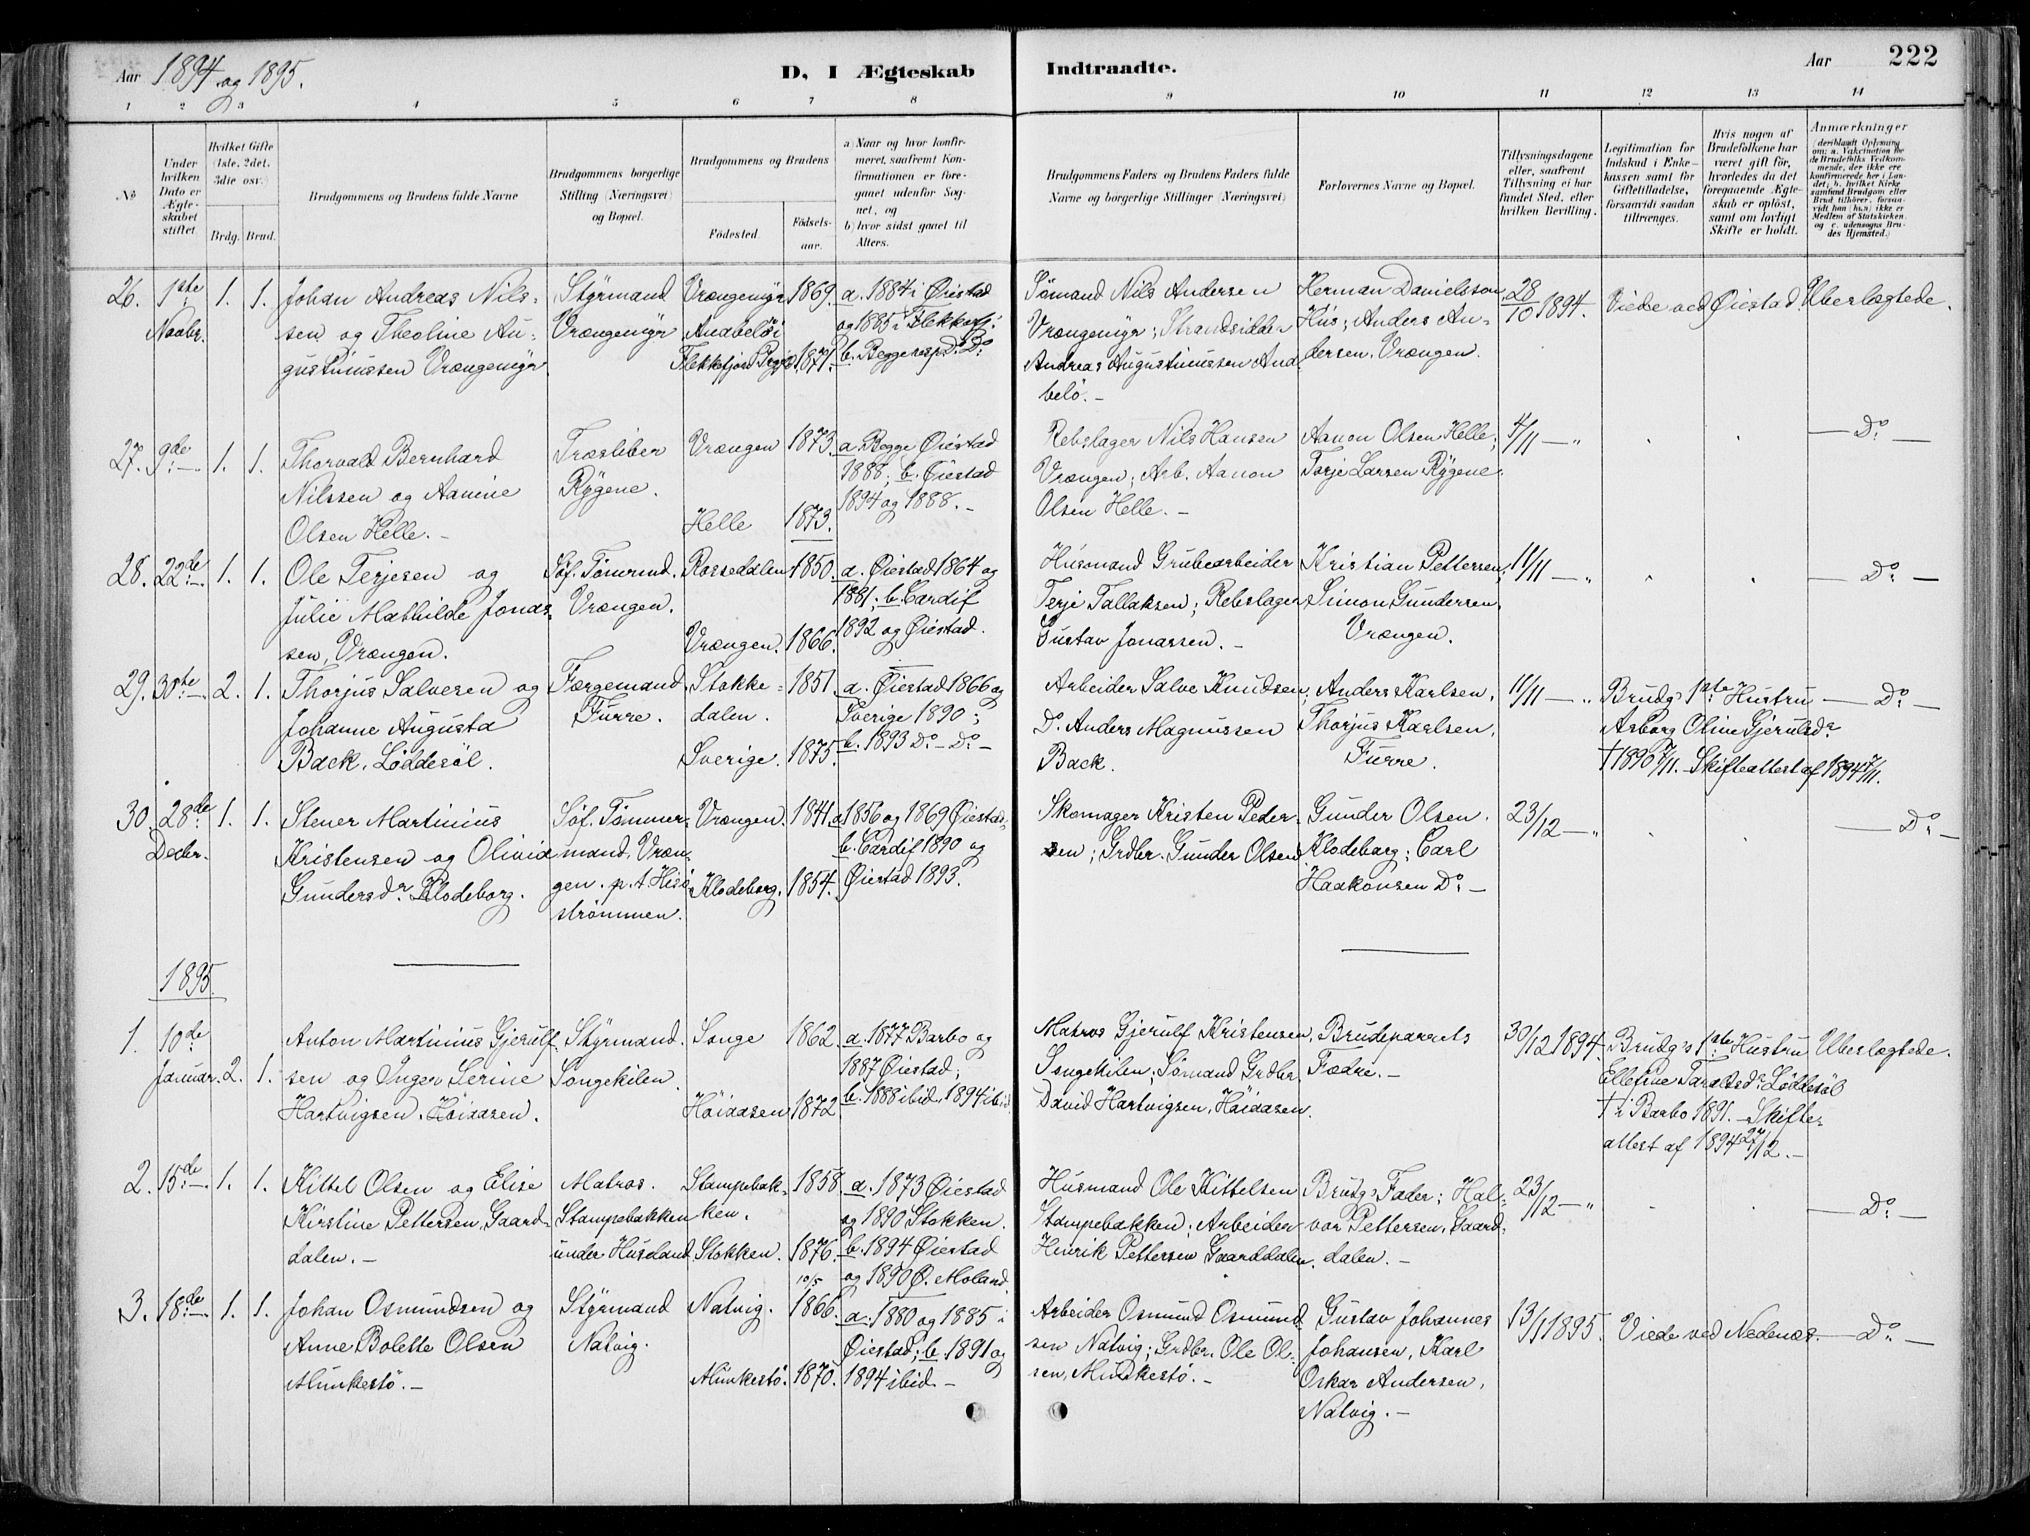 Aar 1894 og 1895.
D, I Ægteskab
Indtraadte.
Aar
222
1 2 3 4 5 6 7 8 9 10 11 12 13 14
No
Under hvilken Dato er Ægteskabet stiftet
Hvilket Gifte (1ste, 2det, 3die osv.)
Brdg. Brud.
Brudgommens og Brudens fulde Navne
Brudgommens borgerlige Stilling (Næringsvei) og Bopæl.
Brudgommens og Brudens
Fødested.
Fødselsaar.
a) Naar og hvor konfirmeret, saafremt Konfirmationen er foregaaet udenfor Sognet, og
b) hvor sidst gaaet til Alters.
Brudgommens Faders og Brudens Faders fulde Navne og borgerlige Stillinger (Næringsvei)
Forlovernes Navne og Bopæl.
Tillysningsdagene eller, saafremt Tillysning ei har fundet Sted, efter hvilken Bevilling.
Legitimation for Indskud i Enkekassen samt for Giftetilladelse, forsaavidt saadan tiltrænges.
Hvis nogen af Brudefolkene har været gift før, hvorledes da det foregaaende Ægteskab er opløst, samt om lovligt Skifte er holdt.
Anmærkninger
26. 1ste Novbr. 1. 1.
Johan Andreas Nils-
sen og Theoline Au-
gustinussen Vrængemyr
Styrmand
Vrængemyr
Vrængemyr 1869.
Andabelö i
Flekkefjord 1871.
a. 1884 i Øiestad
og 1885 i Flekkefj.
b. Begge resp. Do. Do.
Sømand Nils Andersen
Vrængemyr; Strandsidder
Andreas Augustinussen Anda
belö. —
Herman Danielsson
Hus; Anders An-
dersen, Vrængen.
28/10 1894.
Viede ved Øiestad.
Uberlogtede.
27. 9de —. 1. 1.
Thorvald Bernhard
Nilssen og Aanine
Olsen Helle. —
Træsliber
Rygene.
Vrængen 1873.
Helle 1873.
a. Begge Øiestad
1888; b. Øiestad
1894 og 1888. —
Rebslager Nils Hansen
Vrængen; Arb. Aanon
Olsen Helle. —
Aanon Olsen Helle;
Torje Larsen Rygene.
4/11 — "
— Do. —
28. 22de —. 1. 1.
Ole Terjesen og
Julie Mathilde Jonas-
sen, Vrængen.
Söf. Tömrmd.
Vrængen.
Rossedalen 1850.
Vrængen. 1866.
a. Øiestad 1864 og
1881; b. Cardif
1892 og Øiestad.
Husmand Grubearbeider
Terje Tallaksen; Rebslager
Gustav Jonassen. —
Kristian Pettersen;
Simon Gundersen,
Vrængen.
11/11 — "
— Do. —
29. 30te —. 2. 1.
Thorjus Salvesen og
Johanne Augusta
Back, Löddesöl.
Færgemand
Furre.
Stokke- 1851.
dalen.
Sverige. 1875.
a. Øiestad 1866 og
Sverige 1890;
b. 1893 Do. — Do. —
Arbeider Salve Knudsen;
Do. Anders Magnussen
Back.
Anders Karlsen,
Thorjus Karlsen,
Furre.
11/11 — "
Brudg's 1ste Hustru
Asborg Oline Gjerulsdr
Skifteattest af 1894
— Do. —
30. 28de Decbr. 1. 1.
Stener Martinius
Kristensen og Olivia
Gundersdr Klodeborg.
Söf. Tömmer-
mand, Vræn-
gen. p. t. Hisö
strömmen.
Vrængen. 1841.
Klodeborg. 1854.
a. 1856 og 1869 Øiestad.
b. Cardif 1890 og
Øiestad 1893.
Skomager Kristen Peder-
sen; Grdbr. Gunder Olsen
Gunder Olsen.
Klodeborg; Carl
Haakonsen Do. —
23/12 — "
— Do. —
1895.
1. 10de Januar. 2. 1.
Anton Martinius Gjerulf-
sen og Inger Serine
Hartvigsen, Höiaasen.
Styrmand.
Songekilen.
Songe 1862.
Höiaasen 1872
a. 1877 Barbo og
1887 Øiestad;
b. 1888 ibid. 1894 ibid
Matros Gjerulf Kristensen,
Songekilen; Sömand Grdbr.
David Hartvigsen, Höiaasen.
Brudeparrets
Fædre. —
30/12 1894.
Brudg's 1ste Hustru
Ellefine Taraldsdr Löddesöl
† i Barbo 1891. — Skifte-
attest af 1894 27/12. —
Uberlogtede.
2. 15de —. 1. 1.
Kittel Olsen og Elise
Kirstine Pettersen, Gaard-
dalen. —
Matros.
Stampebakken
under Huseland
Stampebak- 1858
ken.
Stokken. 1876.
10/5
a. 1873 Øiestad
og 1890 Stokken.
b. 1894 Øiestad
og 1890 Ø. Moland.
Husmand Ole Kittelsen
Stampebakken; Arbeider
Henrik Pettersen Gaarddalen.
Brudg's Fader; Hal-
vor Pettersen, Gaard-
dalen. —
23/12 — "
— Do. —
3. 18de —. 1. 1.
Johan Osmundsen og
Anne Bolette Olsen
Munkestö. —
Styrmand
Natvig.
Natvig. 1866.
Munkestö. 1870.
a. 1880 og 1885 i
Øiestad; b. 1891 og
1894 ibid. —
Arbeider Osmund Osmund-
sen Natvig; Grdbr. Ole Ol-
sen, Munkestö. —
Gustav Johannes
Johansen, Karl
Oskar Andersen,
Natvig. —
13/1 1895.
Viede ved Nedenæs.
— Do. —